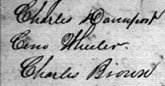 Charles Davenport
Ceno Wheeler
Charles Brown